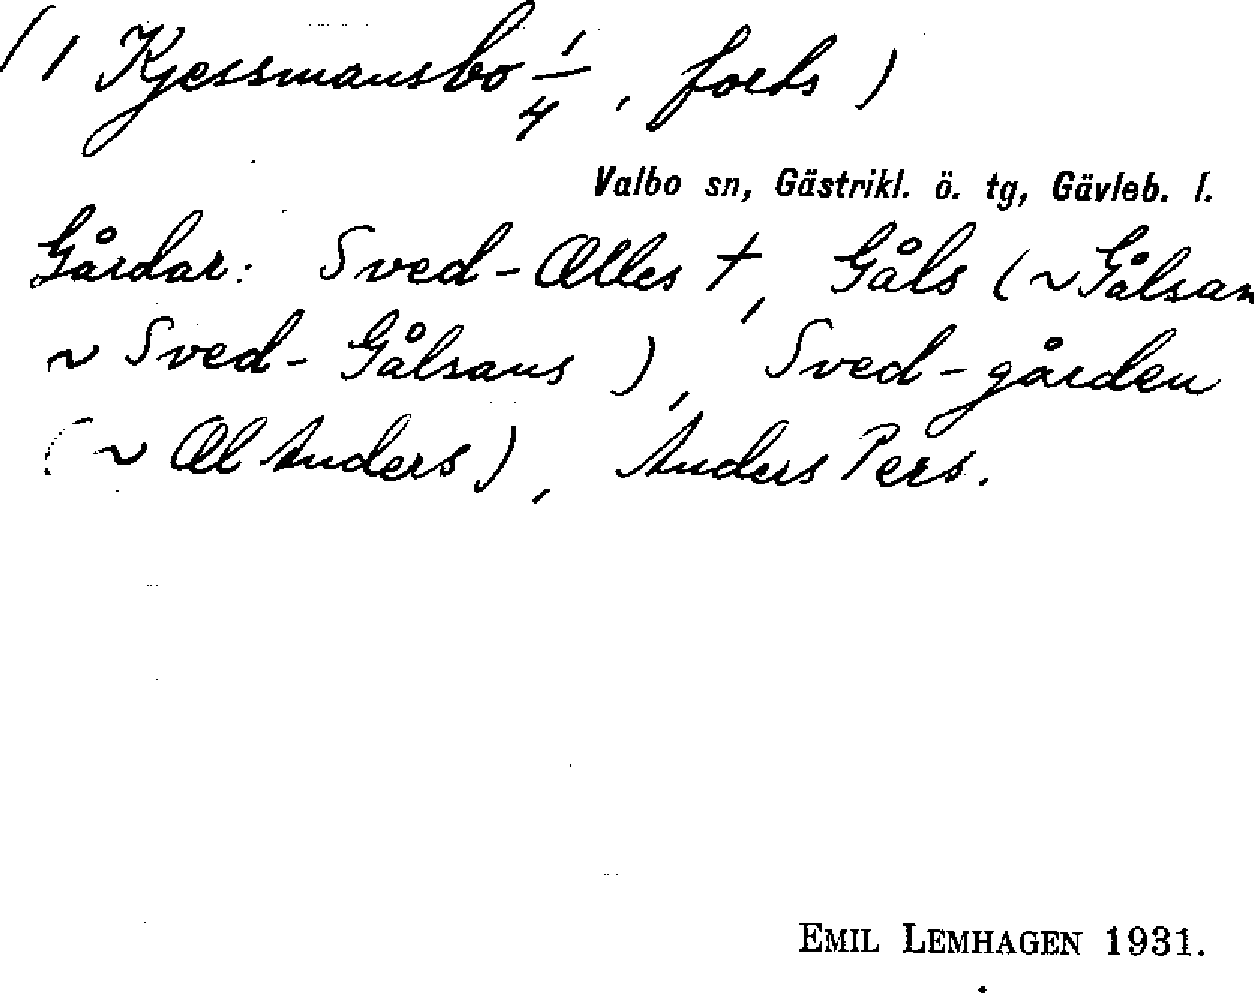 ( 1 Kjessmansbo 1/4, forts )
Valbo sn, Gästrikl. ö. tg, Gävleb. l.
Gårdar: Sved-Œlles †, Gåls (~Gålsan
~ Sved-Gålsans ), Sved-gården
( ~ Œl Anders ), Anders Pers.
EMIL LEMHAGEN 1931.